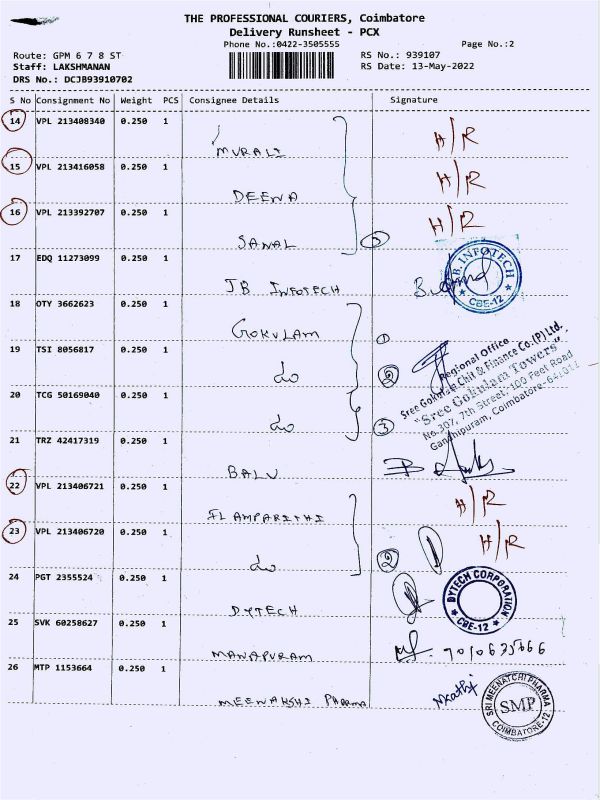 THE PROFESSIONAL COURIERS, Coimbatore
Delivery Runsheet - PCX
Phone No.:0422-3505555
Page No.:2
Route: GPM 6 7 8 ST
RS No.: 939107
Staff: LAKSHMANAN
RS Date: 13-May-2022
DRS No.: DCJB93910702
S No Consignment No Weight PCS Consignee Details Signature
14 VPL 213408340 0.250 1
MURALI
H/R
15 VPL 213416058 0.250 1
DEEWA
H/R
16 VPL 213392707 0.250 1
SANAL
H/R
17 EDQ 11273099 0.250 1
JB INFOTECH
J.B. INFOTECH
CBE-12
18 OTY 3662623 0.250 1
GOKULAM
1
19 TSI 8056817 0.250 1
do
2
20 TCG 50169040 0.250 1
do
3
Regional Office
Sree Gokulam Chit & Finance Co.(P) Ltd.
"Sree Gokulam Towers"
No.307, 7th Street, 100 Feet Road
Gandhipuram, Coimbatore-641012
21 TRZ 42417319 0.250 1
BALU
22 VPL 213406721 0.250 1
ILAMPARITHI
H/R
23 VPL 213406720 0.250 1
do
2
H/R
24 PGT 2355524 0.250 1
DYTECH
DYTECH CORPORATION
CBE-12
25 SVK 60258627 0.250 1
MANAPURAM
26 MTP 1153664 0.250 1
MEENAKSHI PHARMA
SRI MEENATCHI PHARMA
SMP
COIMBATORE-12